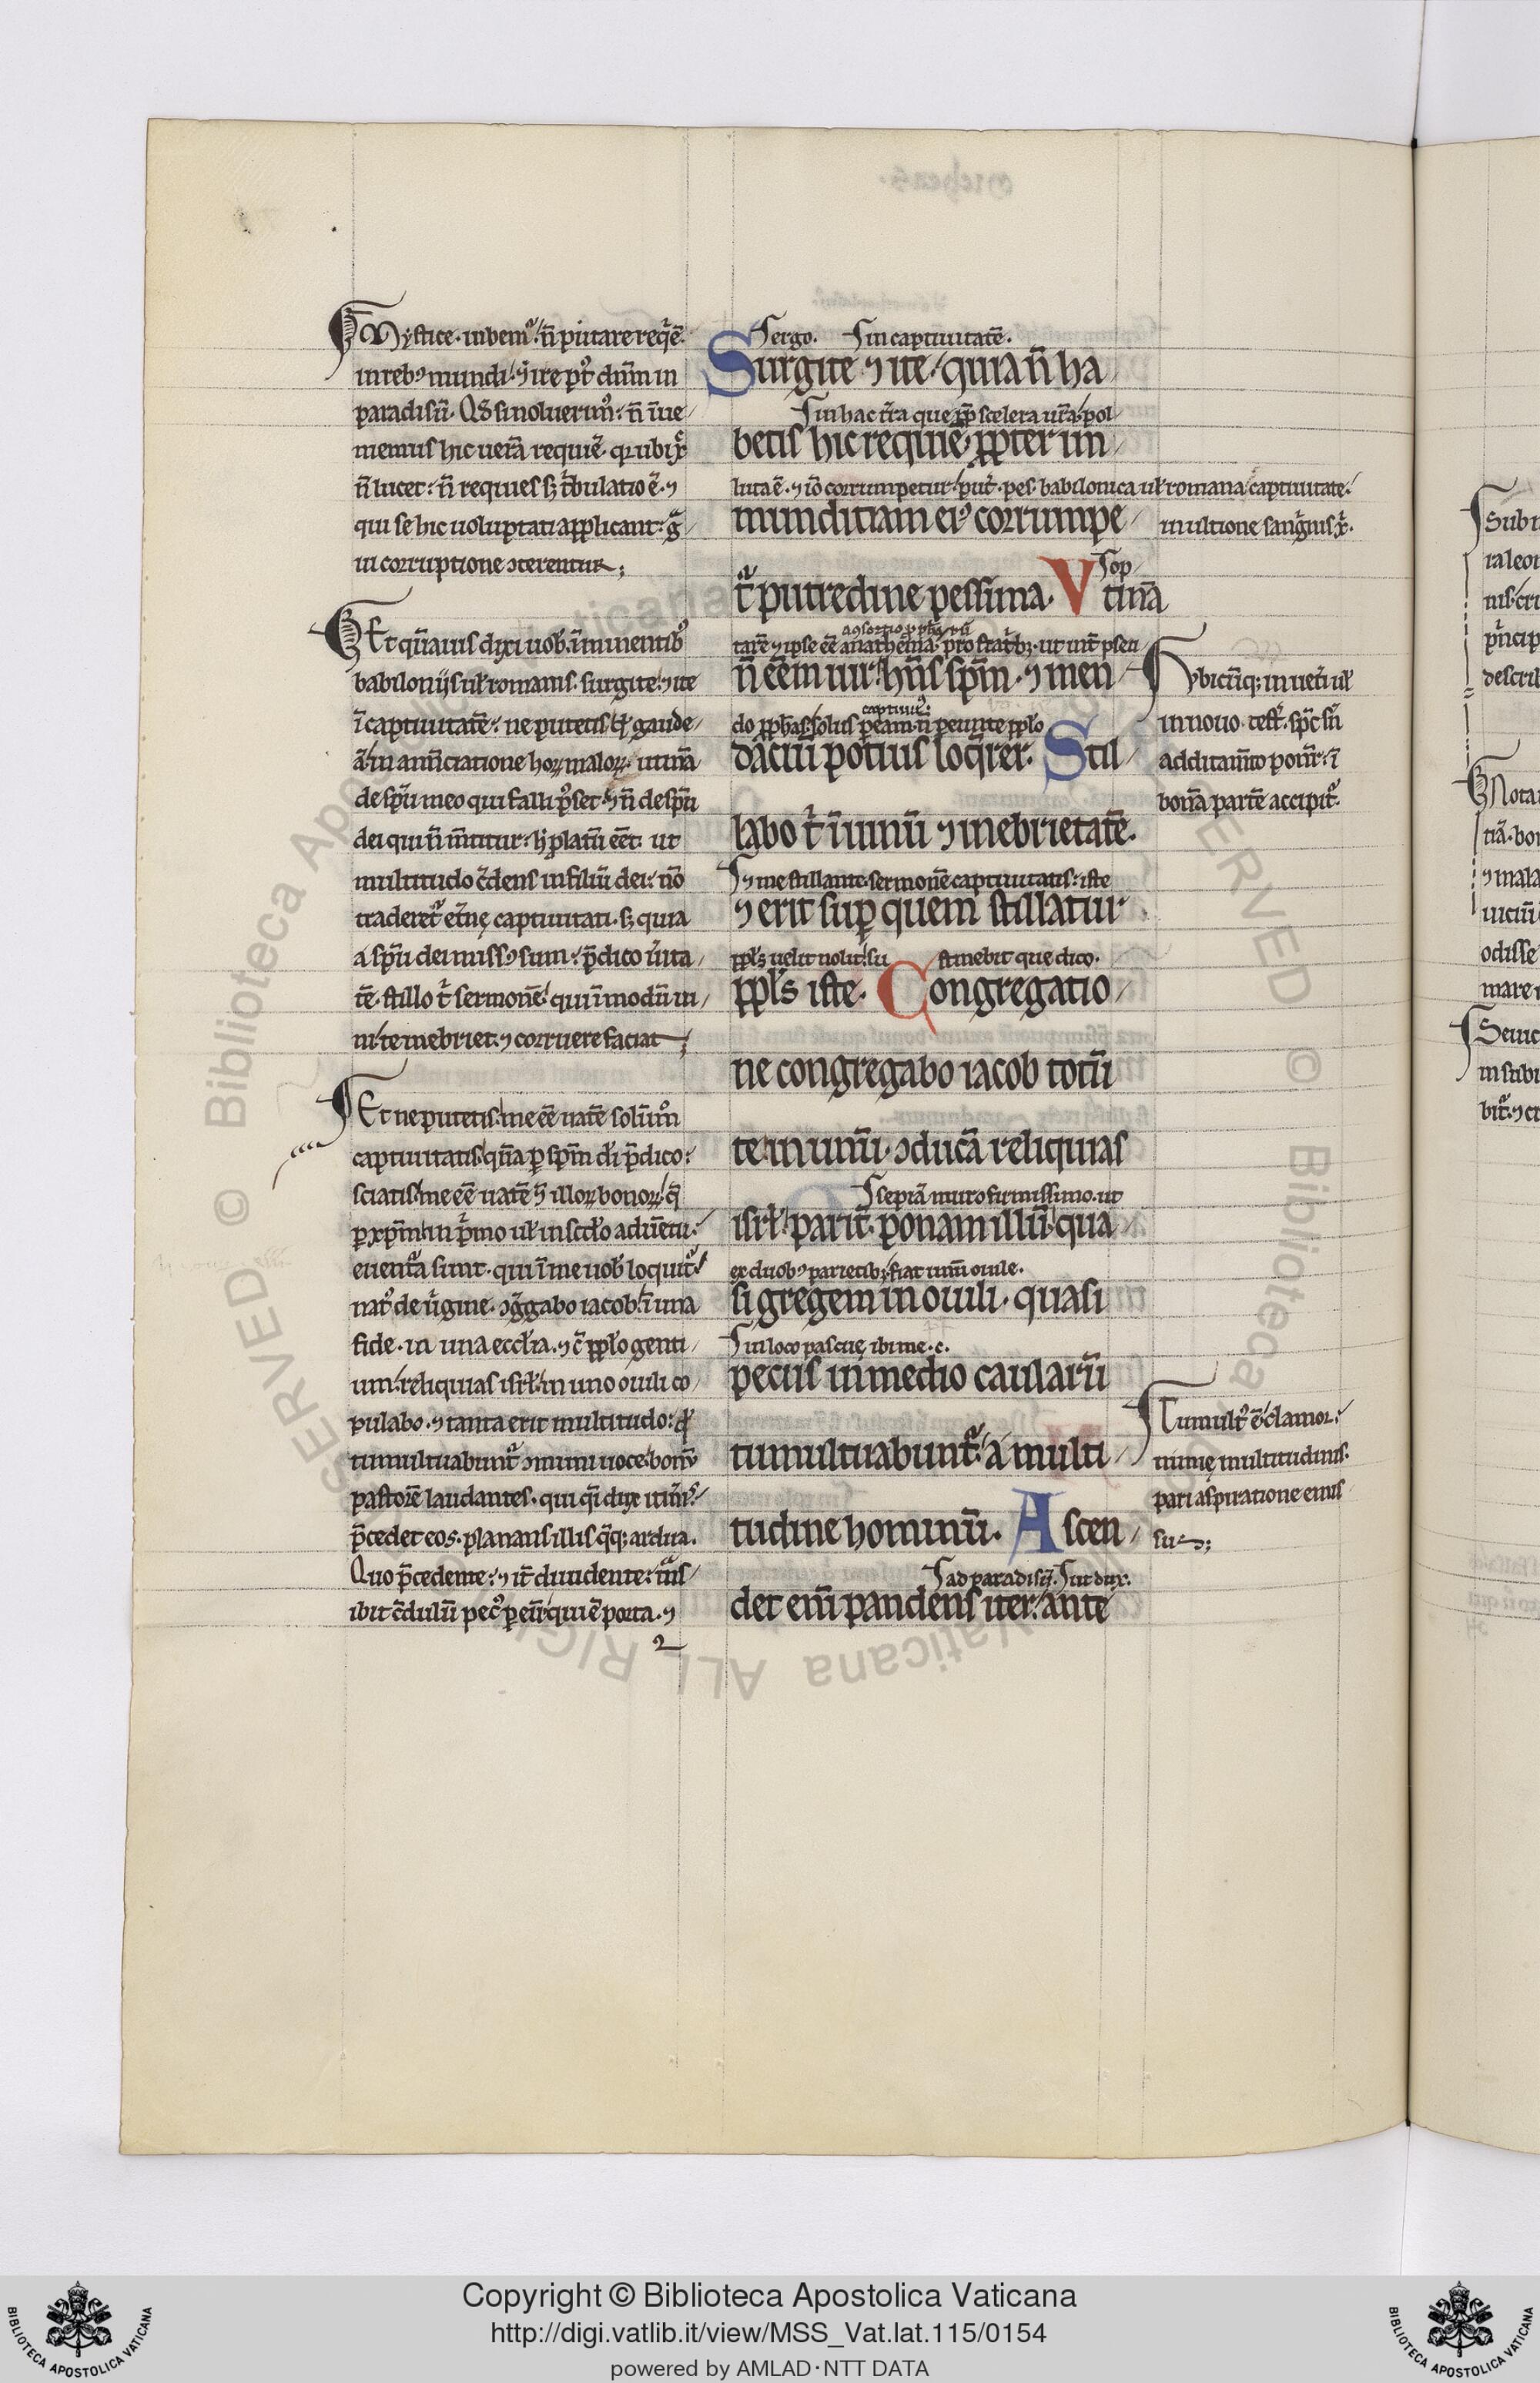 Mystice. iubemʳ. n̄ putare req̄ē
in rebꝰ mundi. s; ire p̄t dn̄m in
paradisū. Qd̄ si noluerimꝰ. n̄ īue
niemus hic uerā requiē. q͛ ubi xp̄c
n̄ lucet. n̄ requies s; t͛bulatio ē. ⁊
qui se hic uoluptati applicant. g͛
in corruptione ɔterentur;
Et q̄uis dixi uob̄. īminentibꝰ
babilonijs ul̄ romanis. surgite. ⁊ ite
ī captiuitatē. ne putetis q͛ gaude
ā in annūciatione hoꝝ maloꝝ. utinā
de sp̄u meo qui falli pꝰset. ⁊ n̄ de sp̄u
dei qui n̄ m̄titur. h͛ platū eēt. ut
multitudo c̄dens in filiū dei. nō
traderet͛ et̄nę captiuitati. s; quia
a sp̄u dei missꝰ sum. p̄dico ū̄ita
tē. stillo t͛ sermonē. qui īmodū ui
ni te inebriet. ⁊ corruere faciat;
Et ne putetis me eē uatē solūmō
captiuitatis. q̄ n̄a p sp̄m dī p̄dico.
sciatis me eē uatē ⁊ illoꝝ bonoꝝ. q̄
p xp̄m in p͛mo ul̄ in sc̄do aduētu.
euent͛a sunt. qui ī me uob̄ loquit͛.
natꝰ de ū͛gine. ɔg͛gabo iacob. ī una
fide. in una eccl̄ia. ⁊ c̄ pp̄lo genti
um. reliquias isrl̄. in uno ouili co
pulabo. ⁊ tanta erit multitudo. q͛
tumultuabunt͛ ɔmuni uoce. bonū
pastorē laudantes. qui q͛i dux itin͛is.
p̄cedet eos. planans illis q̄q; ardua.
Quo p̄cedente. ⁊ it͛ diuidente. t͛ns
ibit c̄dulū pecꝰ p eū. qui ē porta. ⁊
ergo. in captiuitatē.
Surgite ⁊ ite. quia n̄ ha
in hac t͛ra que ꝓp̄ scelera ur̄a. pol
betis hic requiē. ꝓpter im
luta ē. ⁊ iō corrumpetur. put͛. pes. babilonica ul̄ romana captiuitate.
munditiam eiꝰ corrumpe
in ultione sang͛uis xp̄i.
op
t͛ putredine pessima. Vtinā
tarē ⁊ ipse eē anathema. pro fratrib;. ut uiū psen
n̄ eēm uir. hn̄s sp̄m. ⁊ men
captiuiꝰ.
do ꝓph̄as. solus peam. n̄ peunte pp̄lo
daciū potius loq̄rer. Stil
labo t͛ ī uinū ⁊ in ebrietatē.
⁊ me stillante. sermonē captiuitatis. iste
⁊ erit sup quem stillatur
pp̄ls uelit nolit. su stinebit que dico.
pp̄ls iste. Congregatio
ne congregabo iacob totū
te. in unū. ɔducā reliquias
sepiā muro firmissimo. ut
isrl̄. parit͛. ponam illū. qua
ex duobꝰ parietib;. fiat unū ouile.
si gregem in ouili. quasi
in loco pascuę ibi me. c.
pecus in medio caularū
tumultuabunt͛. a multi
tudine hominū. Ascen
ad paradisū. ut dux.
det enī pandens iter. ante
Vbicūq; in uet͛i ul̄
in nouo. test͛. sp̄c sn̄
additam̄to ponit͛. ī
bonā partē accipit͛.
Tumultꝰ ē clamor.
nimię multitudinis.
pari aspiratione emis
sus;
Copyright © Biblioteca Apostolica Vaticana
http://digi.vatlib.it/view/MSS_Vat.lat.115/0154
powered by AMLAD·NTT DATA